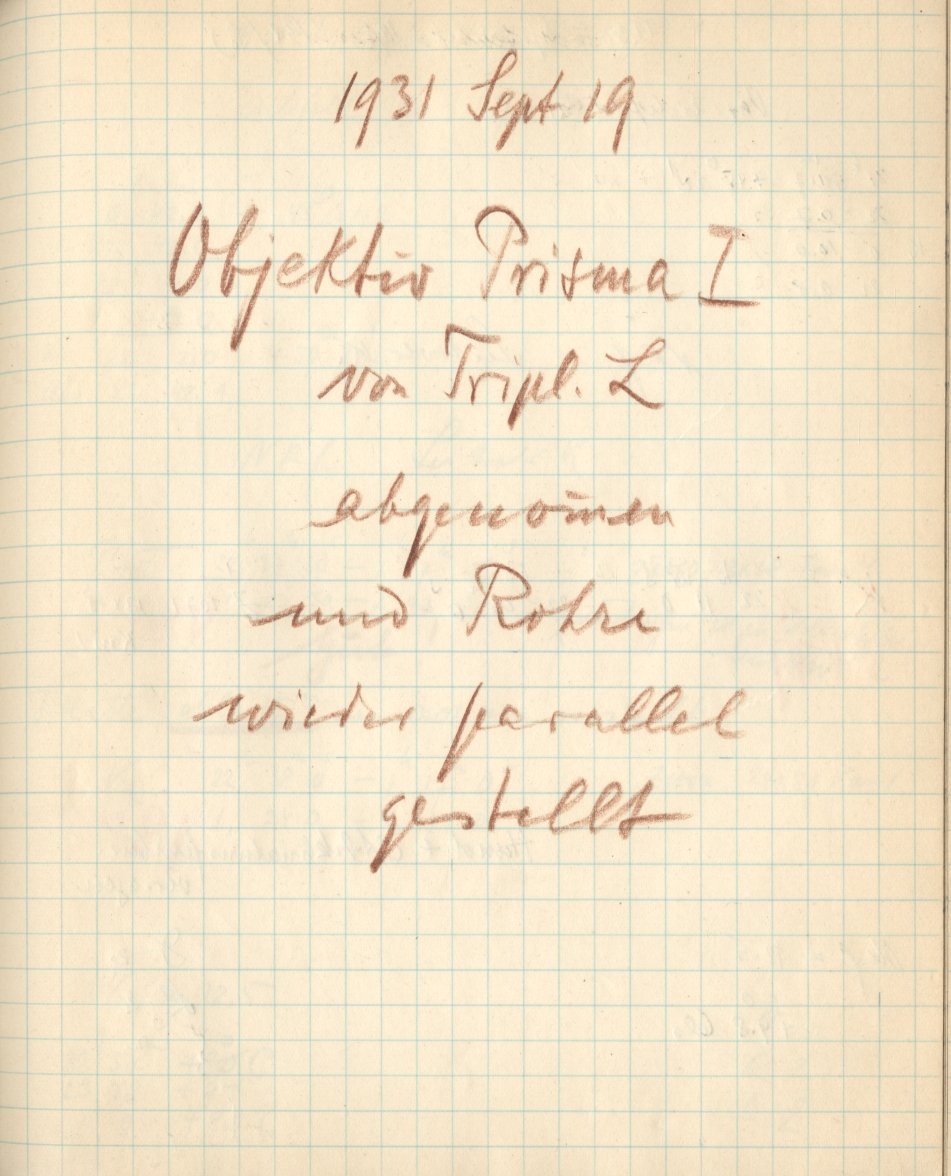 1931 Sept 19
Objektiv Prisma I
von Tripl. L
abgenom̄en
und Rohre
wieder parallel
gestellt